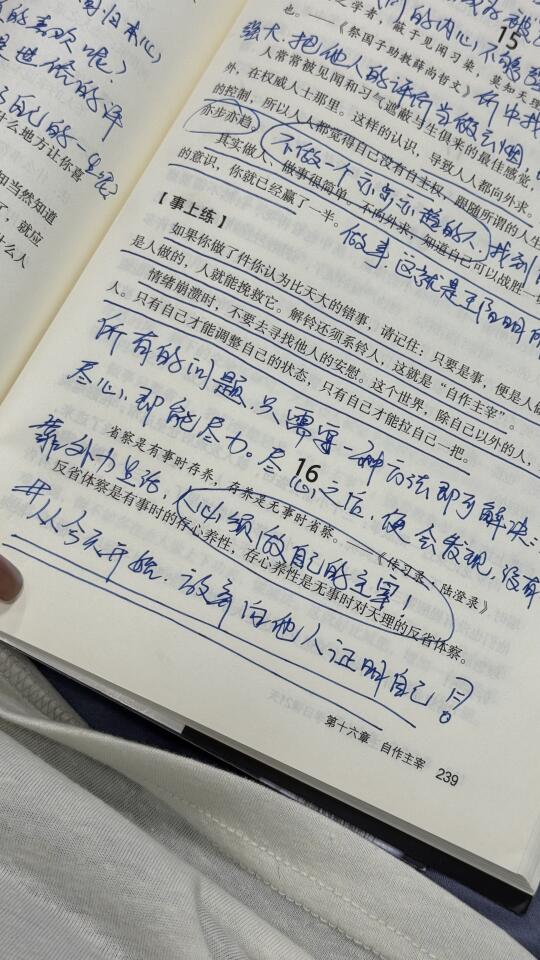 归本心
的喜欢呢？
的评
自己的一生
什么地方让你喜
知当然知道
了，就应
什么人
15
之学者，蔽于见闻习染，莫知天理
们的内心，不够强
也。——《祭国子助教薛尚哲文》
强大，把他人的评价当做云烟，
人常常被见闻和习气遮蔽与生俱来的最佳感觉，
外，在权威人士那里。这样的认识，导致人人都向外求。
的控制，所以人人都觉得自己没有自主权，跟随所谓的人生
亦步亦趋。
不做一个亦步亦趋的人
其实做人、做事很简单。不向外求，知道自己可以战胜一切
的意识，你就已经赢了一半。
做事，这就是王阳明所
【事上练】
如果你做了件你认为比天大的错事，请记住：只要是事，便是人做
是人做的，人就能挽救它。解铃还须系铃人，这就是“自作主宰”。
情绪崩溃时，不要去寻找他人的安慰。这个世界，除自己以外的人，
人。只有自己才能调整自己的状态，只有自己才能拉自己一把。
所有的问题，只需要一种方法即可解决：
尽心，即能尽力。尽心之后，便会发现，没有
16
省察是有事时存养，存养是无事时省察。——《传习录·陆澄录》
靠外力生活，人必须做自己的主宰！
反省体察是有事时的存心养性，存心养性是无事时对天理的反省体察。
#从今天开始，放弃向他人证明自己！
第十六章 自作主宰 239